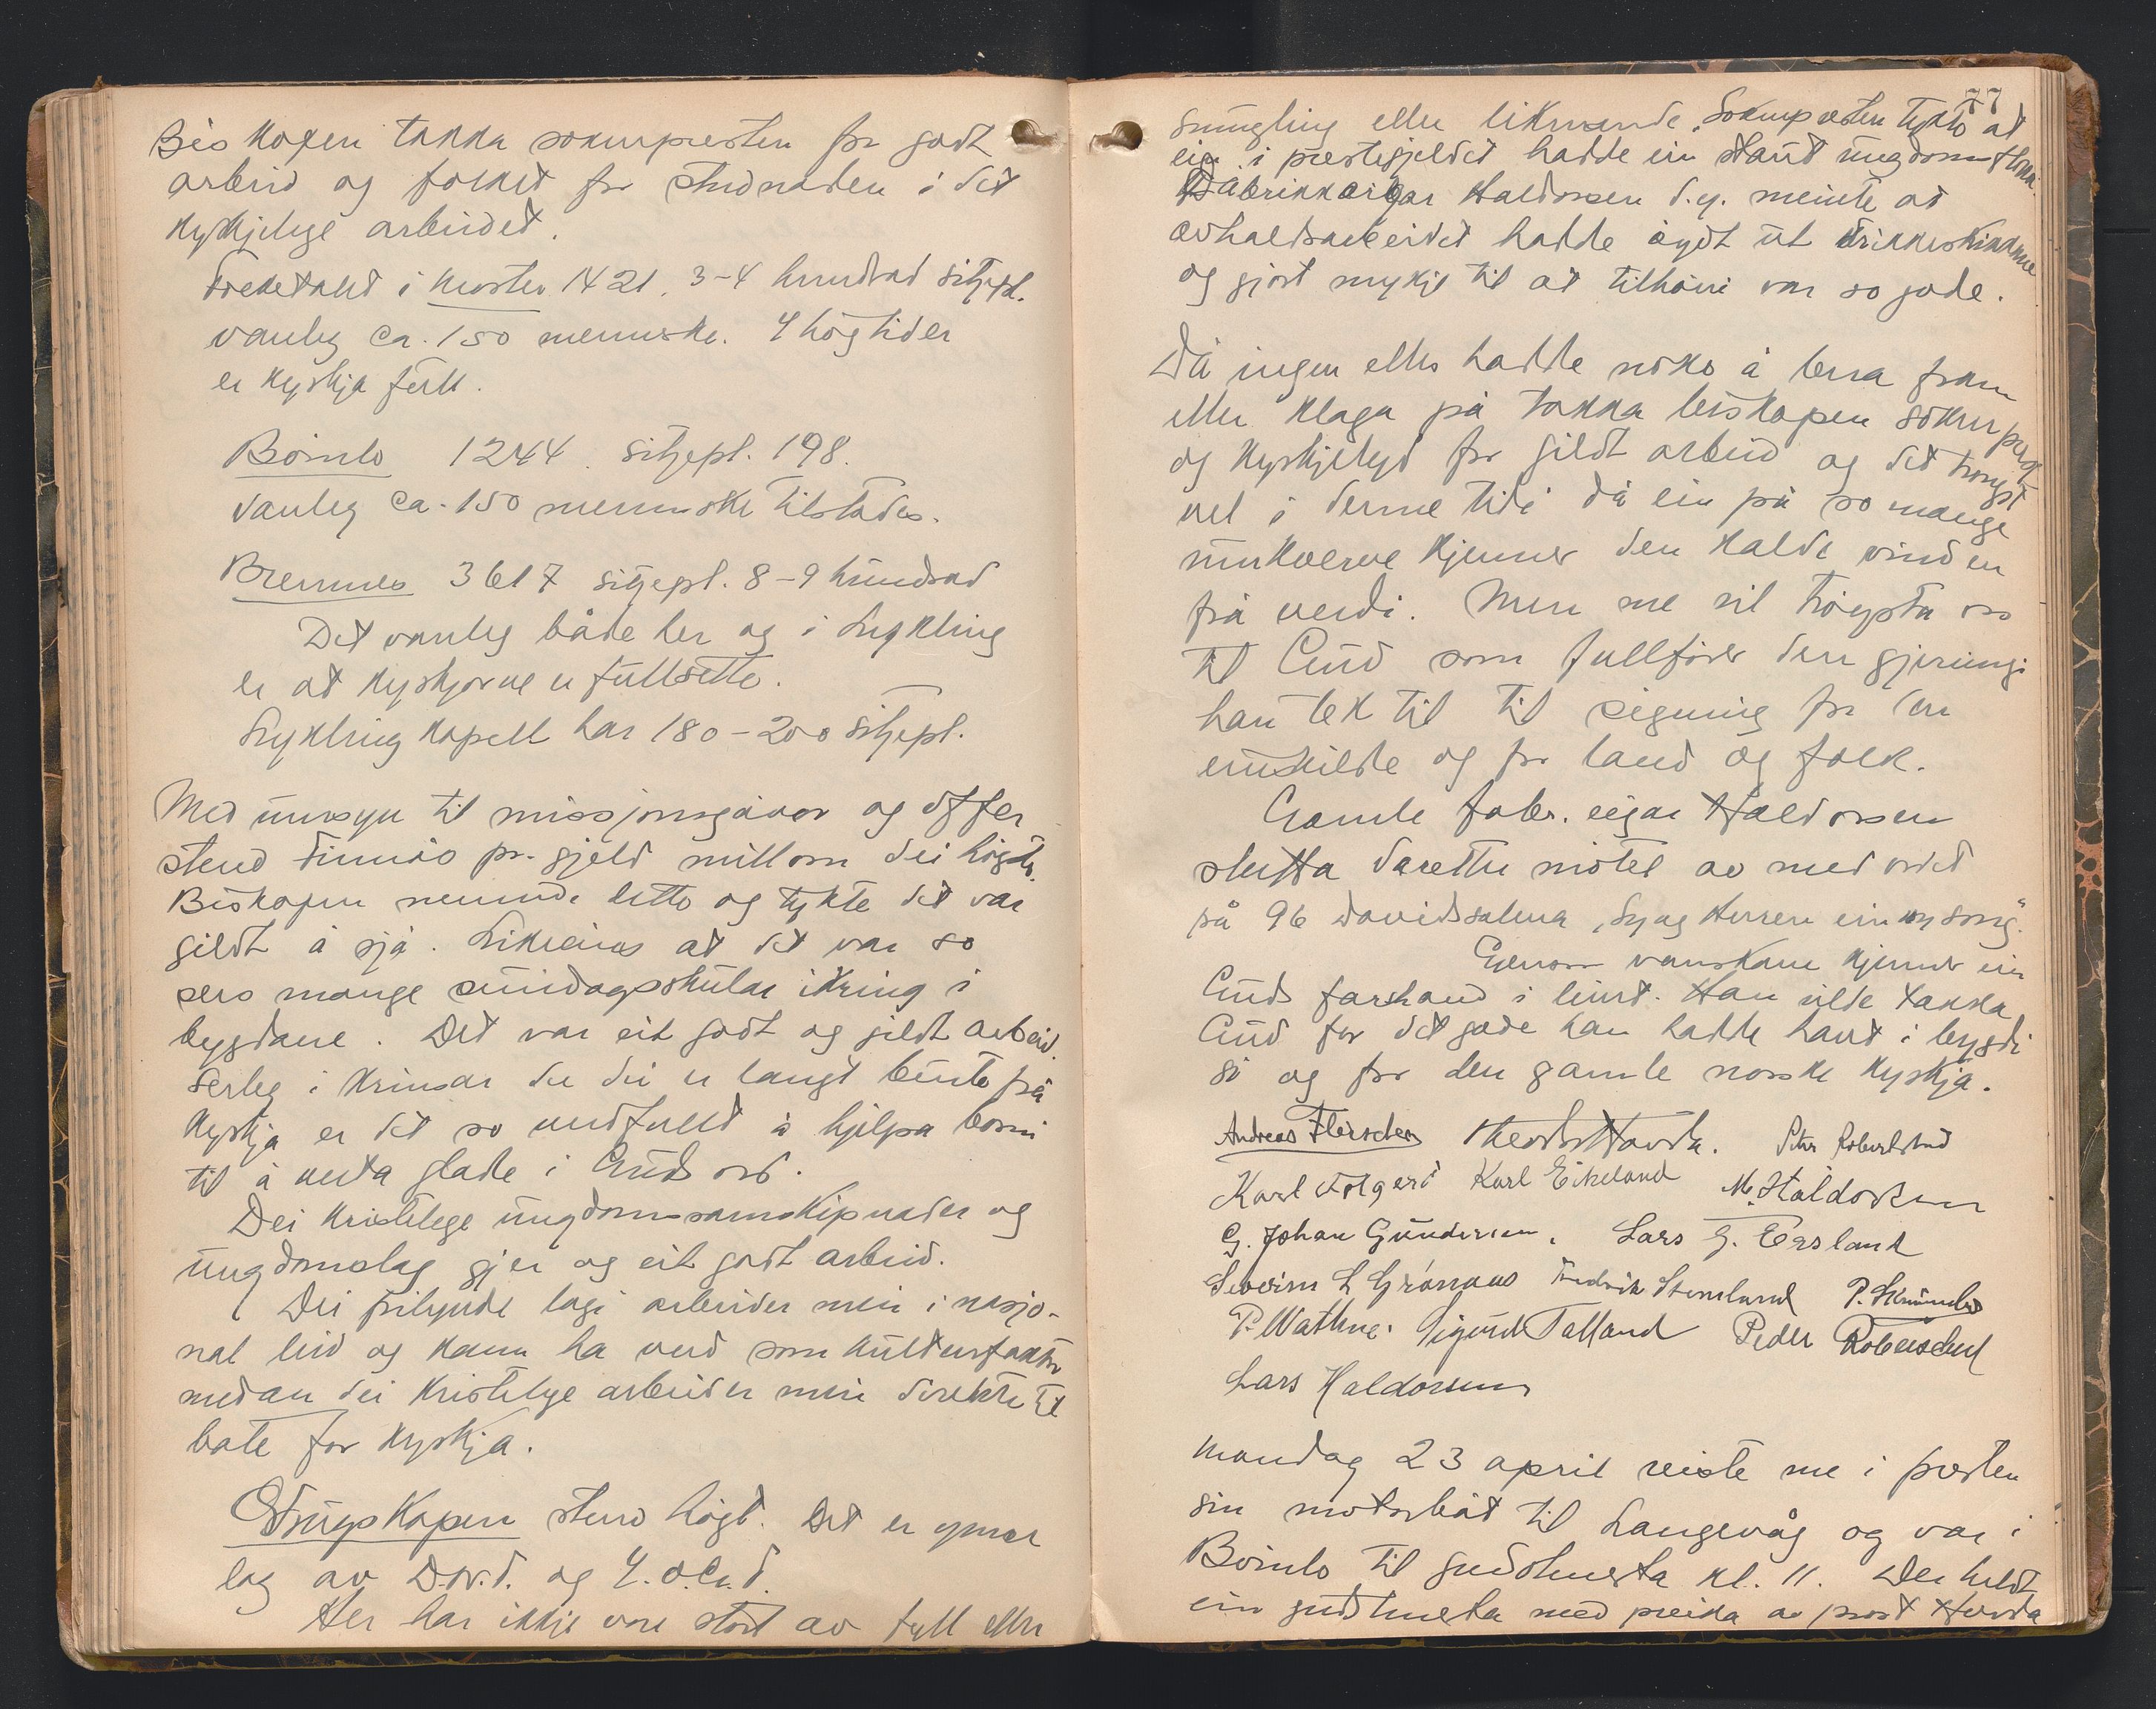 Biskopen takka soknepresten for godt
arbeid og folket for studnaden i det
kyrkjelege arbeidet.
Folketalet i Moster 1421. 3-4 hundrad sitjepl.
vanleg ca. 150 menneske. I høgtider
er kyrkja full.
Bömlo 1244. sitjepl. 198.
vanleg ca. 150 menneske tilstades.
Bremnes 3617 sitjepl. 8-9 hundrad
Det vanleg både her og i Lykling
er at kyrkjorne er fullsette.
Lykling kapell har 180-200 sitjepl.
Med umsyn til missjonsgåvor og offer
stend Finnås pr. gjeld millom dei högste.
Biskopen nemnde dette og tykte det var
gildt å sjå. Likeeins at det var so
pass mange sundagsskular ikring i
bygdane. Det var eit godt og gildt arbeid.
Serleg i krinsar der dei er langt burte frå
kyrkja er det so verdfullt å hjelpa borni
til å verta glade i Guds ord.
Dei kristelege ungdomssamskipnader og
ungdomslag gjer og eit godt arbeid.
Dei frilynde lagi arbeider meir i nasjo-
nal leid og kann ha verd som kulturfaktor
medan dei kristelege arbeider meir direkte til
bate for kyrkja.
Edruskapen stend høgt. Det er ymse
lag av D.N.T. og I.O.G.T.
Her har ikkje vore stort av fyll eller
77
smugling eller liknande. Soknepresten tykte at
ein i prestegjeldet hadde ein staut ungdomsflokk.
Fabrikkeigar Haldorsen d.y. meinte at
avhaldsarbeidet hadde øydt ut drikkeskikkane
og gjort mykje til at tilhøvi var so gode.
Då ingen elles hadde noko å bera fram
eller klaga på takka biskopen sokneprest
og kyrkjelyd for gildt arbeid og det trengst
vel i denne tidi då ein på so mange
umkverve kjenner den kalde vinden
frå verdi. Men me vil trøysta oss
til Gud som fullfører den gjerning
han tek til til signing for den
einskilde og for land og folk.
Gamle fabr. eigar Haldorsen
slutta deretter møtet av med ordet
på 96 Davidssalma "Syng Herren ein ny song".
Gjenom vanskane kjenner ein
Guds farshand i livet. Han vilde takka
Gud for det gode han hadde havt i bygdi
si og for den gamle norske kyrkja.
Andreas Fleischer Theodor Hovda. Peter Robertstad
Karl Folgerö Karl Eikeland M. Haldorsen
G. Johan Gundersen. Lars G. Eersland
Severin L Grönaas Fredrik Stemland P.
P. Wathne. Sigurd Talland Peder
Lars Haldorsen
Mandag 23 april reiste me i presten
sin motorbåt til Langevåg og var i
Bömlo til gudstenesta kl. 11. Der heldt
ein gudstenesta med preika av prost Hovda